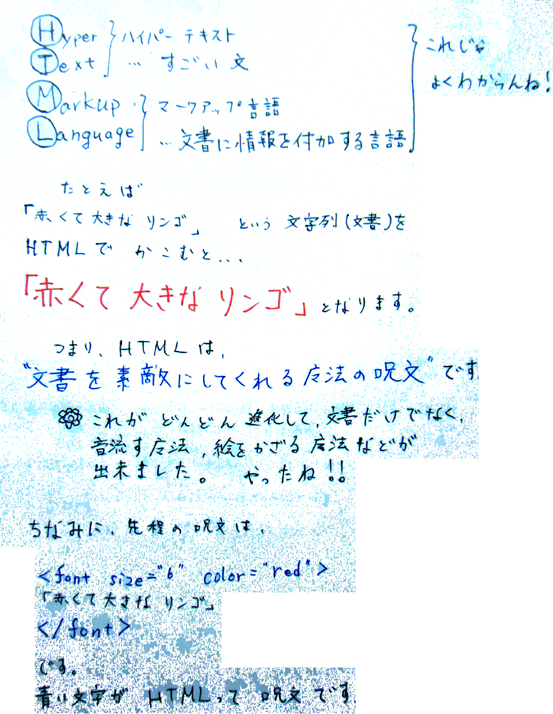 Hyper ハイパーテキスト
Text … すごい文
Markup マークアップ言語
Language … 文書に情報を付加する言語
これじゃ
よくわからんね!
たとえば
「赤くて大きな リンゴ」 という 文字列(文書)を
HTMLで かこむと...
「赤くて 大きな リンゴ」となります。
つまり、HTMLは、
"文書を素敵にしてくれる魔法の呪文"です
これが どんどん 進化して、文書だけでなく、
音流す魔法、絵をかざる魔法などが
出来ました。 やったね!!
ちなみに、先程の呪文は、
<font size="6" color="red">
「赤くて大きな リンゴ」
</font>
です。
青い文字が HTMLって 呪文です